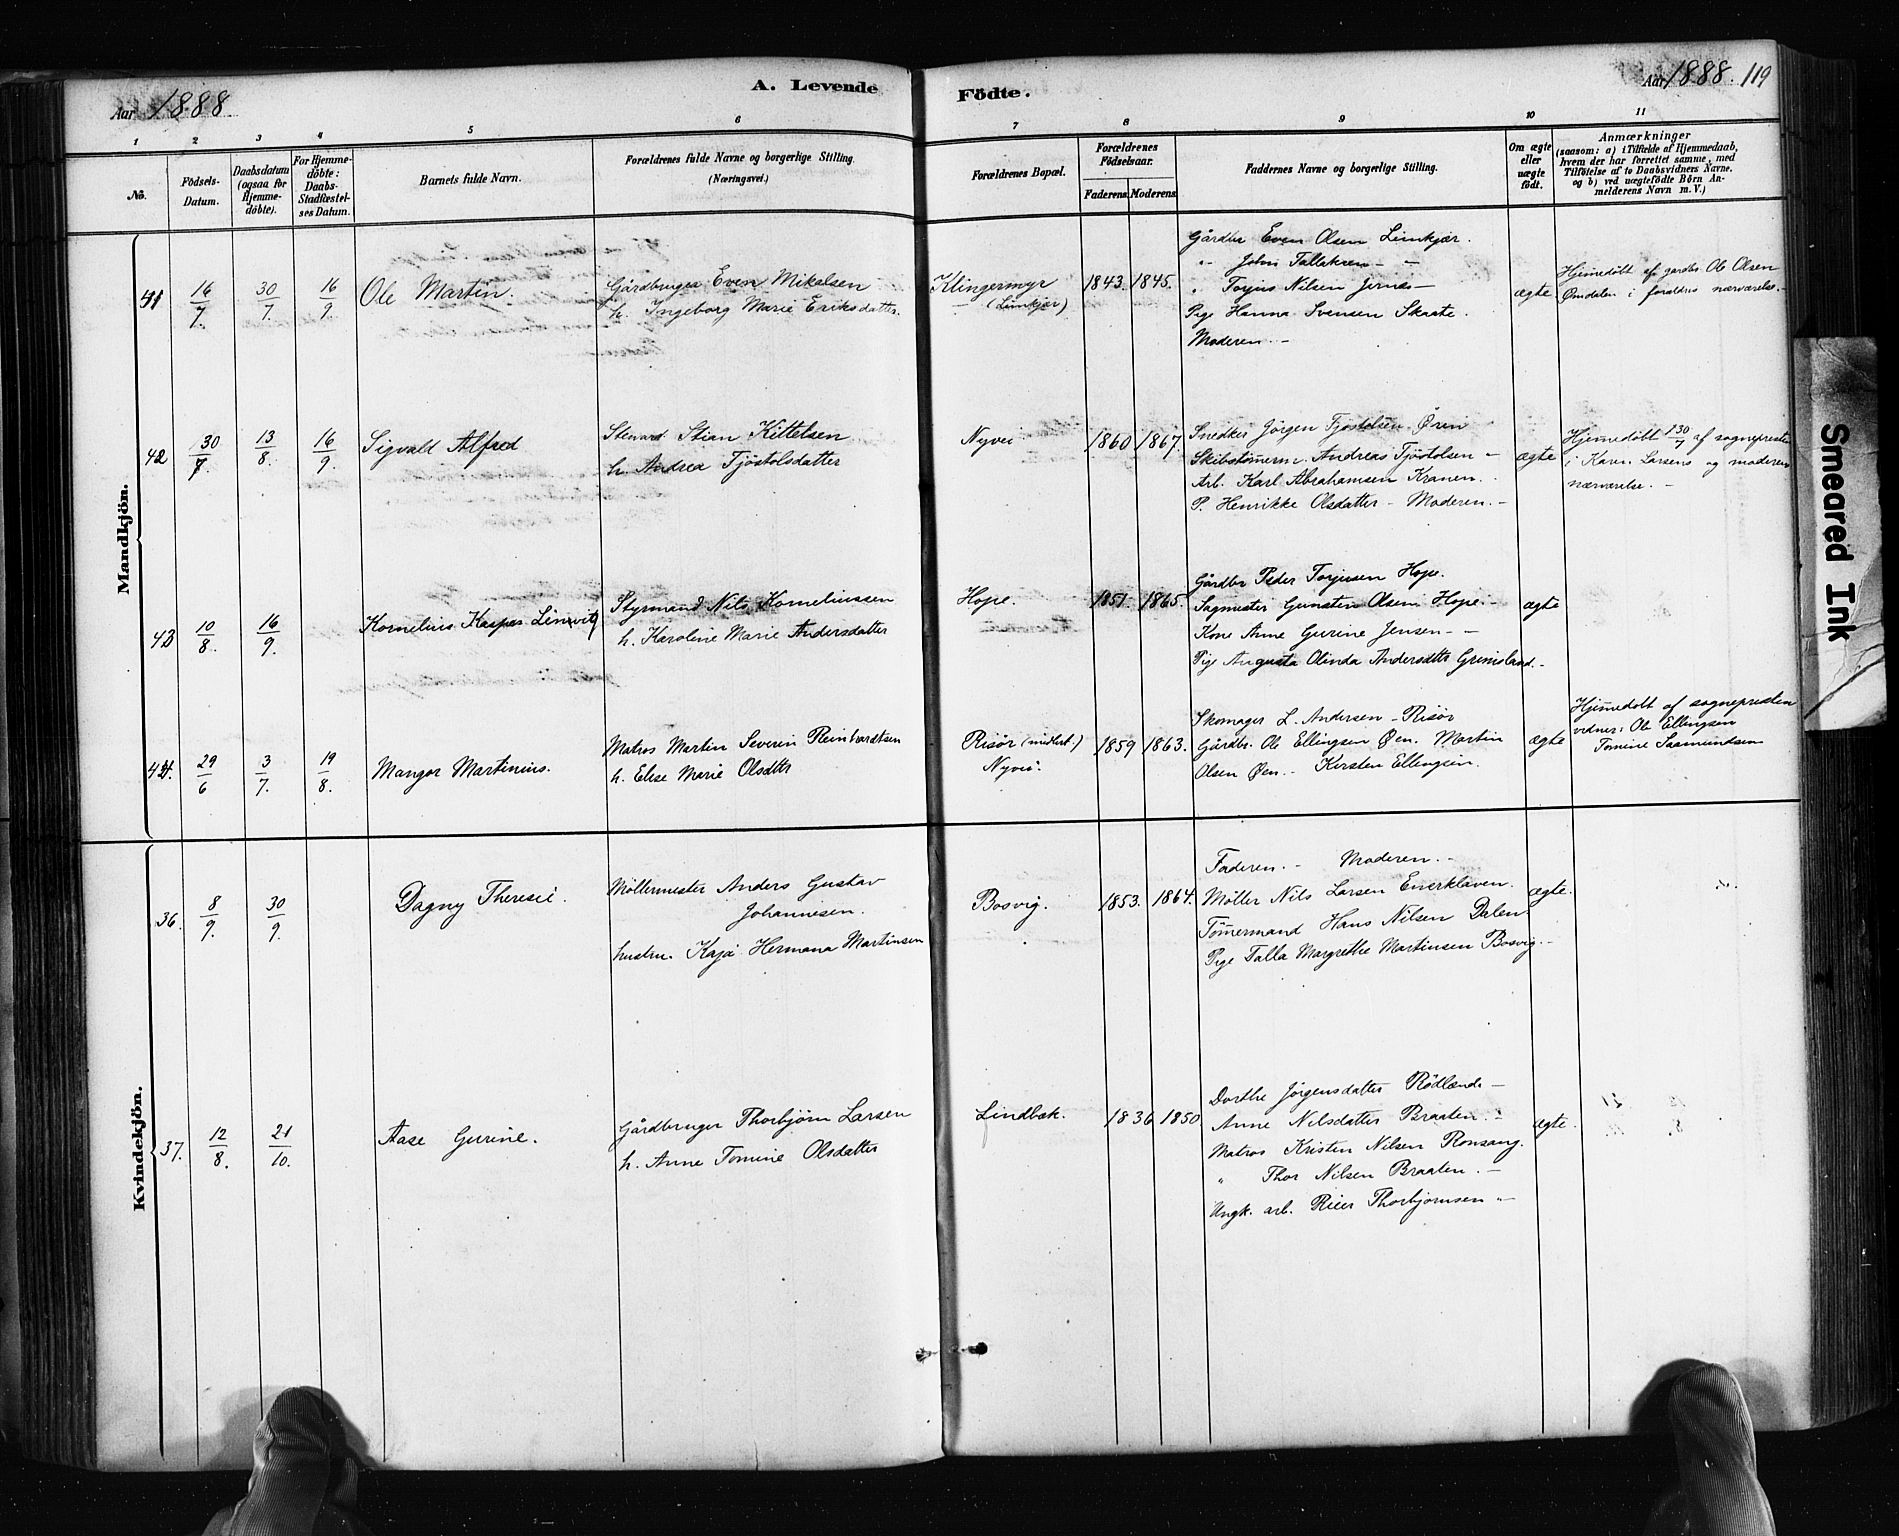 Aar 1888.
A. Levende
Födte.
Aar 1888. 119
1 2 3 4 5 6 7 8 9 10 11
No.
Födsels-Datum.
Daabsdatum (ogsaa for Hjemmedöbte).
For Hjemmedöbte: Daabs-Stadfæstelses Datum.
Barnets fulde Navn.
Forældrenes fulde Navne og borgerlige Stilling.
(Næringsvei.)
Forældrenes Bopæl.
Forældrenes Födselsaar.
Faderens Moderens
Faddernes Navne og borgerlige Stilling.
Om ægte eller uægte födt.
Anmærkninger
(saasom: a) i Tilfælde af Hjemmedaab,
hvem der har forrettet samme, med
Tilföielse af to Daabsvidners Navne.
og b) ved uægtefödte Börn Anmelderens Navn m. V.)
Mandkjön.
41 16/7. 30/7 16/9. Ole Martin.
Gårdbruger Even Mikalsen
h. Ingeborg Marie Eriksdatter.
Klingermyr
(Limkjær)
1843. 1845.
Gårdbr Even Olsen Limkjær.
" John Tallaksen - -
" Torjus Nilsen Jernæs -
Pige Hanna Svensen Skaate.
Moderen. -
ægte
Hjemmedöbt af gardbr. Ole Olsen
Omdalen i foraldres nærværelse. -
42 30/7. 13/8. 16/9. Sigvald Alfred
Steward Stian Kittelsen
h. Andrea Tjöstolsdatter
Nyvei
1860 1867.
Snedker Jörgen Tjöstolsen Øren
Skibstömerm. Andreas Tjöstolsen -
Arb. Karl Abrahamsen Kranen.
P. Henrikke Olsdatter - Moderen. -
ægte
Hjemmedöbt 30/7 af sognepresten
i Karen Larsens og moderens
nærværelse. -
43 10/8. 16/9. Kornelius Kasper
Styrmand Nils Korneliussen
h. Karoline Marie Andersdatter
Hope.
1851. 1865.
Gårdbr Peder Torjusen Hope.
Sagmester Gunsten Olsen Hope. -
Kone Anne Gurine Jensen - -
Pige Augusta Olinda Andersdtter Grimsland. -
ægte
44. 29/6 3/7. 19/8. Mangor Martinius.
Matros Martin Severin Reinhardtsen
h. Elise Marie Olsdtter
Risör (midlert.)
Nyvei.
1859 1863.
Skomager L. Andersen - Risör
Gårdbr. Ole Ellingsen Øen. Martin
Olsen Øen. - Kirsten Ellingsen.
ægte
Hjemmedöbt af sognepresten
vidner: Ole Ellingsen
Tomine Saamundsen
Kvindekjön.
36. 8/9. 30/9. Dagny Theresie.
Möllermester Anders Gustav
Johannesen.
hustru. Kaja Hermana Martinsen
Bosvig.
1853. 1864.
Faderen. - Moderen. -
Möller Nils Larsen Enerklaven.
Tömermand Hans Nilsen Dalen.
Pige Talla Margrethe Martinsen Bosvig. -
ægte.
37. 12/8. 21/10. Aase Gurine.
Gårdbruger Thorbjörn Larsen
h. Anne Tomine Olsdatter
Lindbæk.
1836 1850
Dorthe Jörgensdatter Rödlænd -
Anne Nilsdatter Braaten. -
Matros Kristen Nilsen Ronsang.
" Thor Nilsen Braaten. -
Ungk. arb. Reier Thorbjornsen " -
ægte.
Smeared Ink